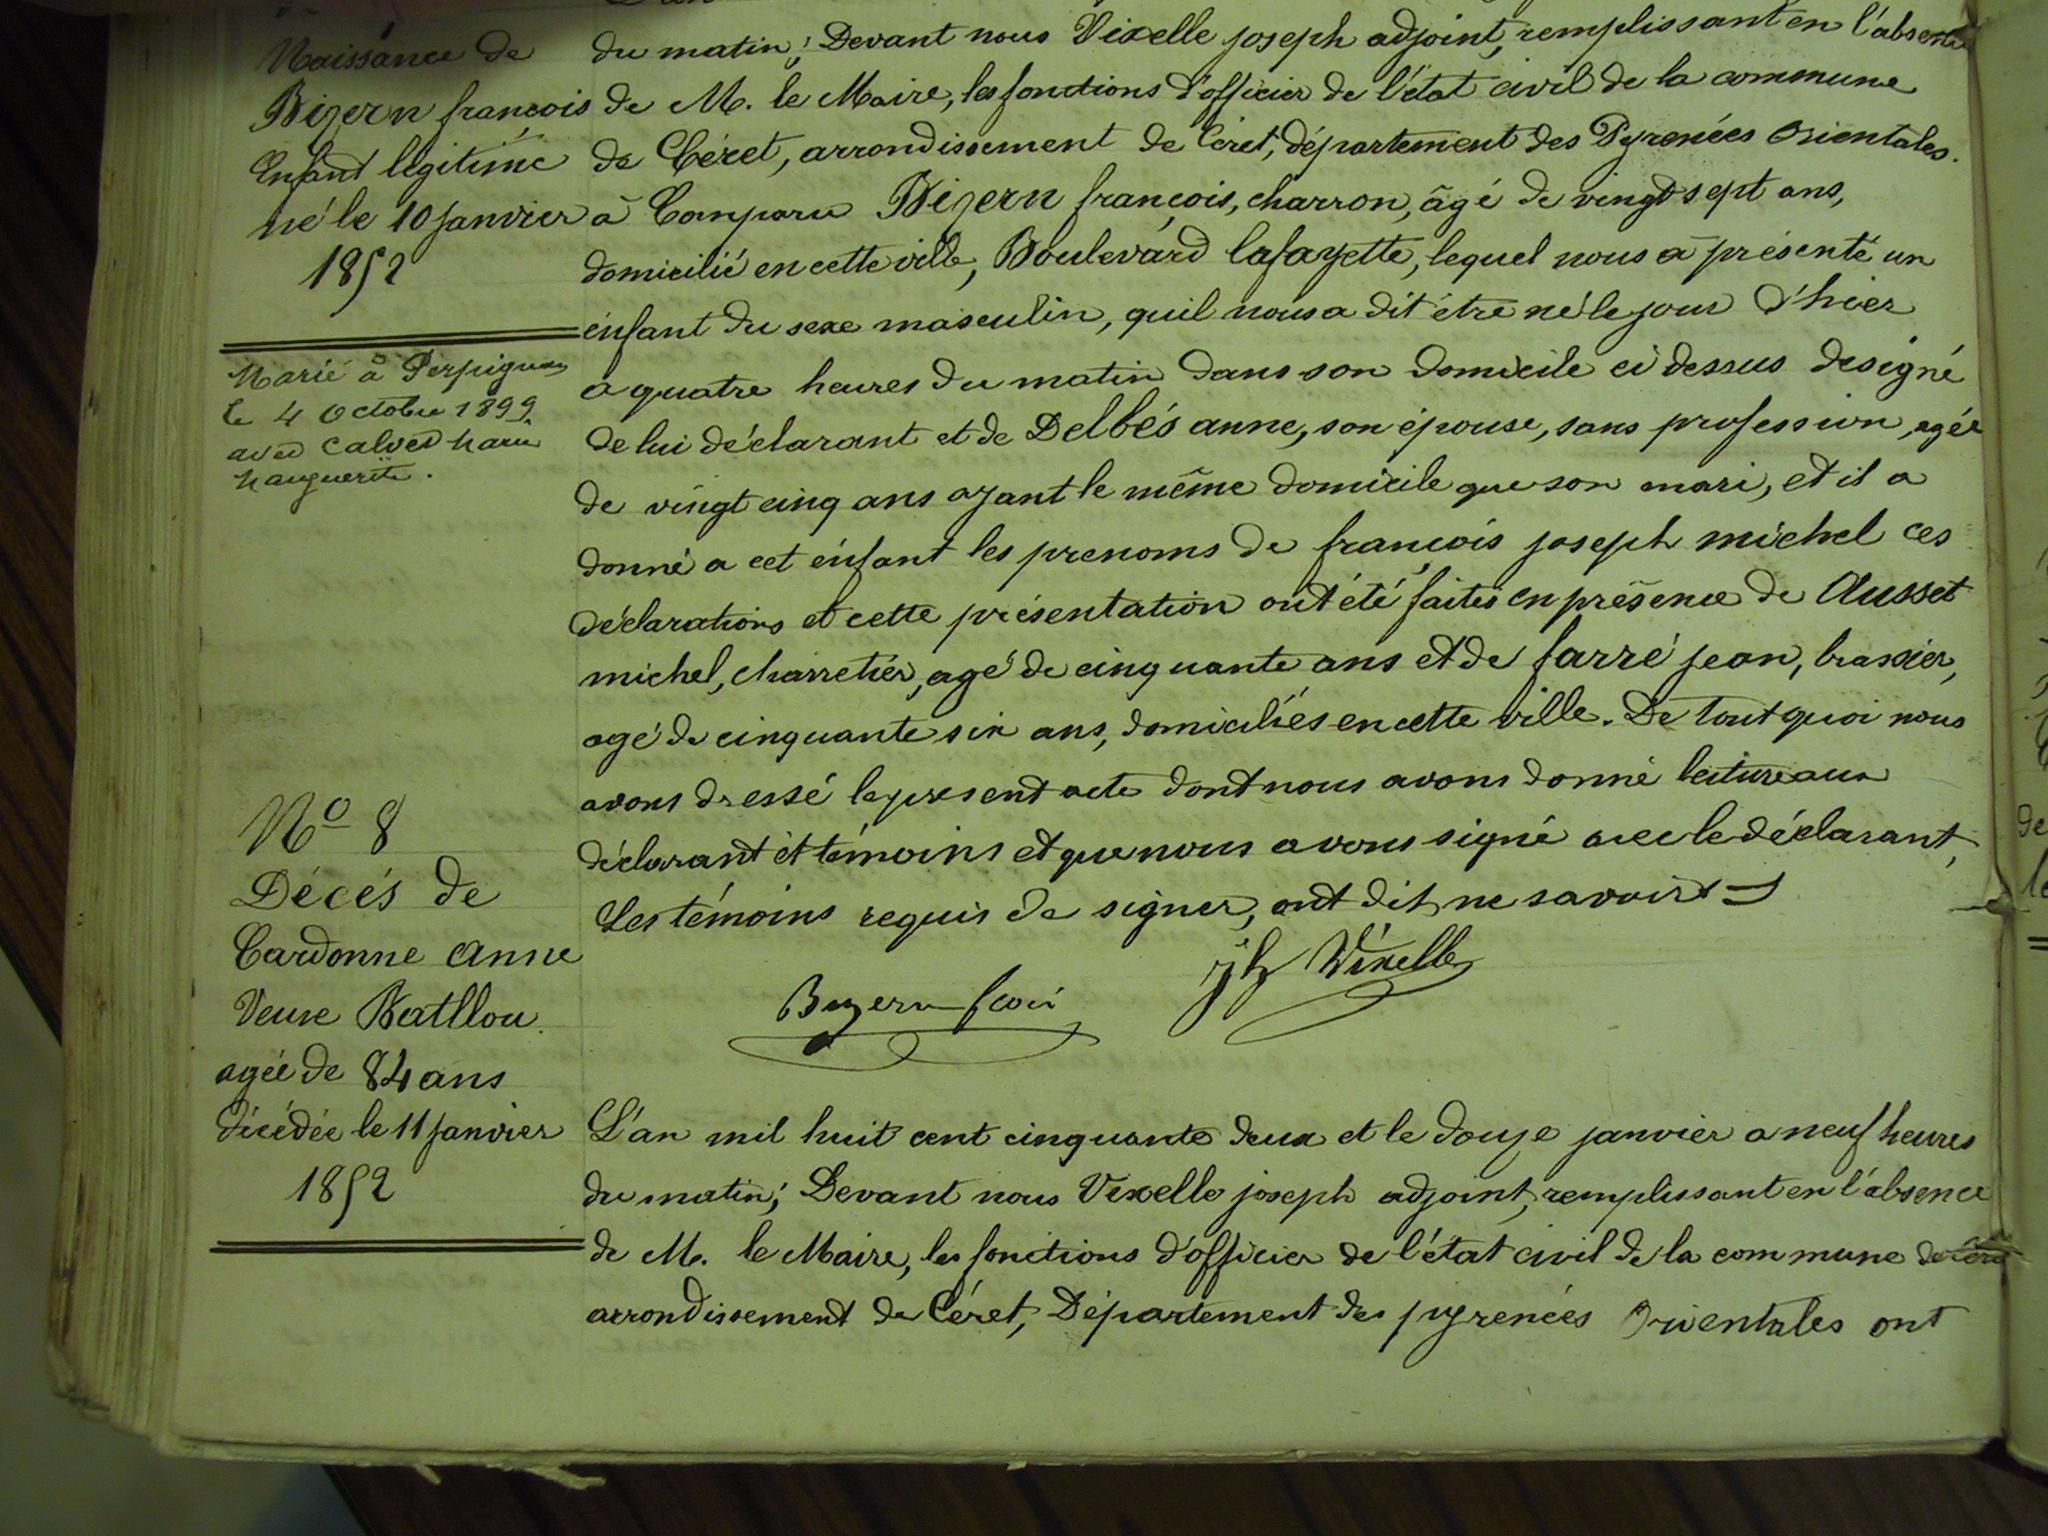 Naissance de
Bizern françois
Enfant légitime
né le 10 janvier
1852
Marié à Perpignan
le 4 octobre 1899
avec Calvet Marie
Marguerite.
du matin; Devant nous Vixelle joseph adjoint, remplissant en l'absence
de M. le Maire, les fonctions d'officier de l'état civil de la commune
de Céret, arrondissement de Céret, département des Pyrenées Orientales.
à Comparu Bizern françois, charron, âgé de vingt sept ans,
domicilié en cette ville, Boulevard lafayette, lequel nous a présenté un
énfant du sexe masculin, quil nous a dit être né le jour d'hier
a quatre heures du matin dans son domicile ci dessus designé
de lui déclarant et de Delbés anne, son épouse, sans profession, agée
de vingt cinq ans ayant le même domicile que son mari, et il a
donné a cet énfant les prenoms de françois joseph michel ces
déclarations et cette présentation ont été faites en présence de Ausset
michel, charretier, agé de cinquante ans et de farré jean, brassier,
agé de cinquante six ans, domiciliés en cette ville. De tout quoi nous
avons dressé le present acte dont nous avons donné lecture aux
déclarant et témoins et que nous avons signé avec le déclarant,
Les témoins requis de signer, ont dit ne savoir
Bizern fcois
jh Vixelle
No 8
Décés de
Cardonne Anne
Veuve Batllou
agée de 84 ans
décédée le 11 janvier
1852
L'an mil huit cent cinquante deux et le douze janvier a neuf heures
du matin; Devant nous Vixelle joseph adjoint, remplissant en l'absence
de M. le Maire, les fonctions d'officier de l'état civil de la commune de Céret
arrondissement de Céret, Département des pyrenées Orientales ont